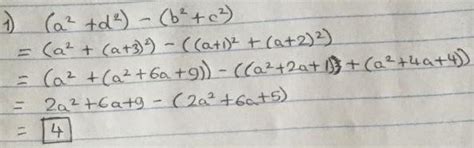 1) (a² + d²) - (b² + c²)
= (a² + (a+3)²) - ((a+1)² + (a+2)²)
= (a² + (a² + 6a + 9)) - ((a² + 2a + 1) + (a² + 4a + 4))
= 2a² + 6a + 9 - (2a² + 6a + 5)
= 4